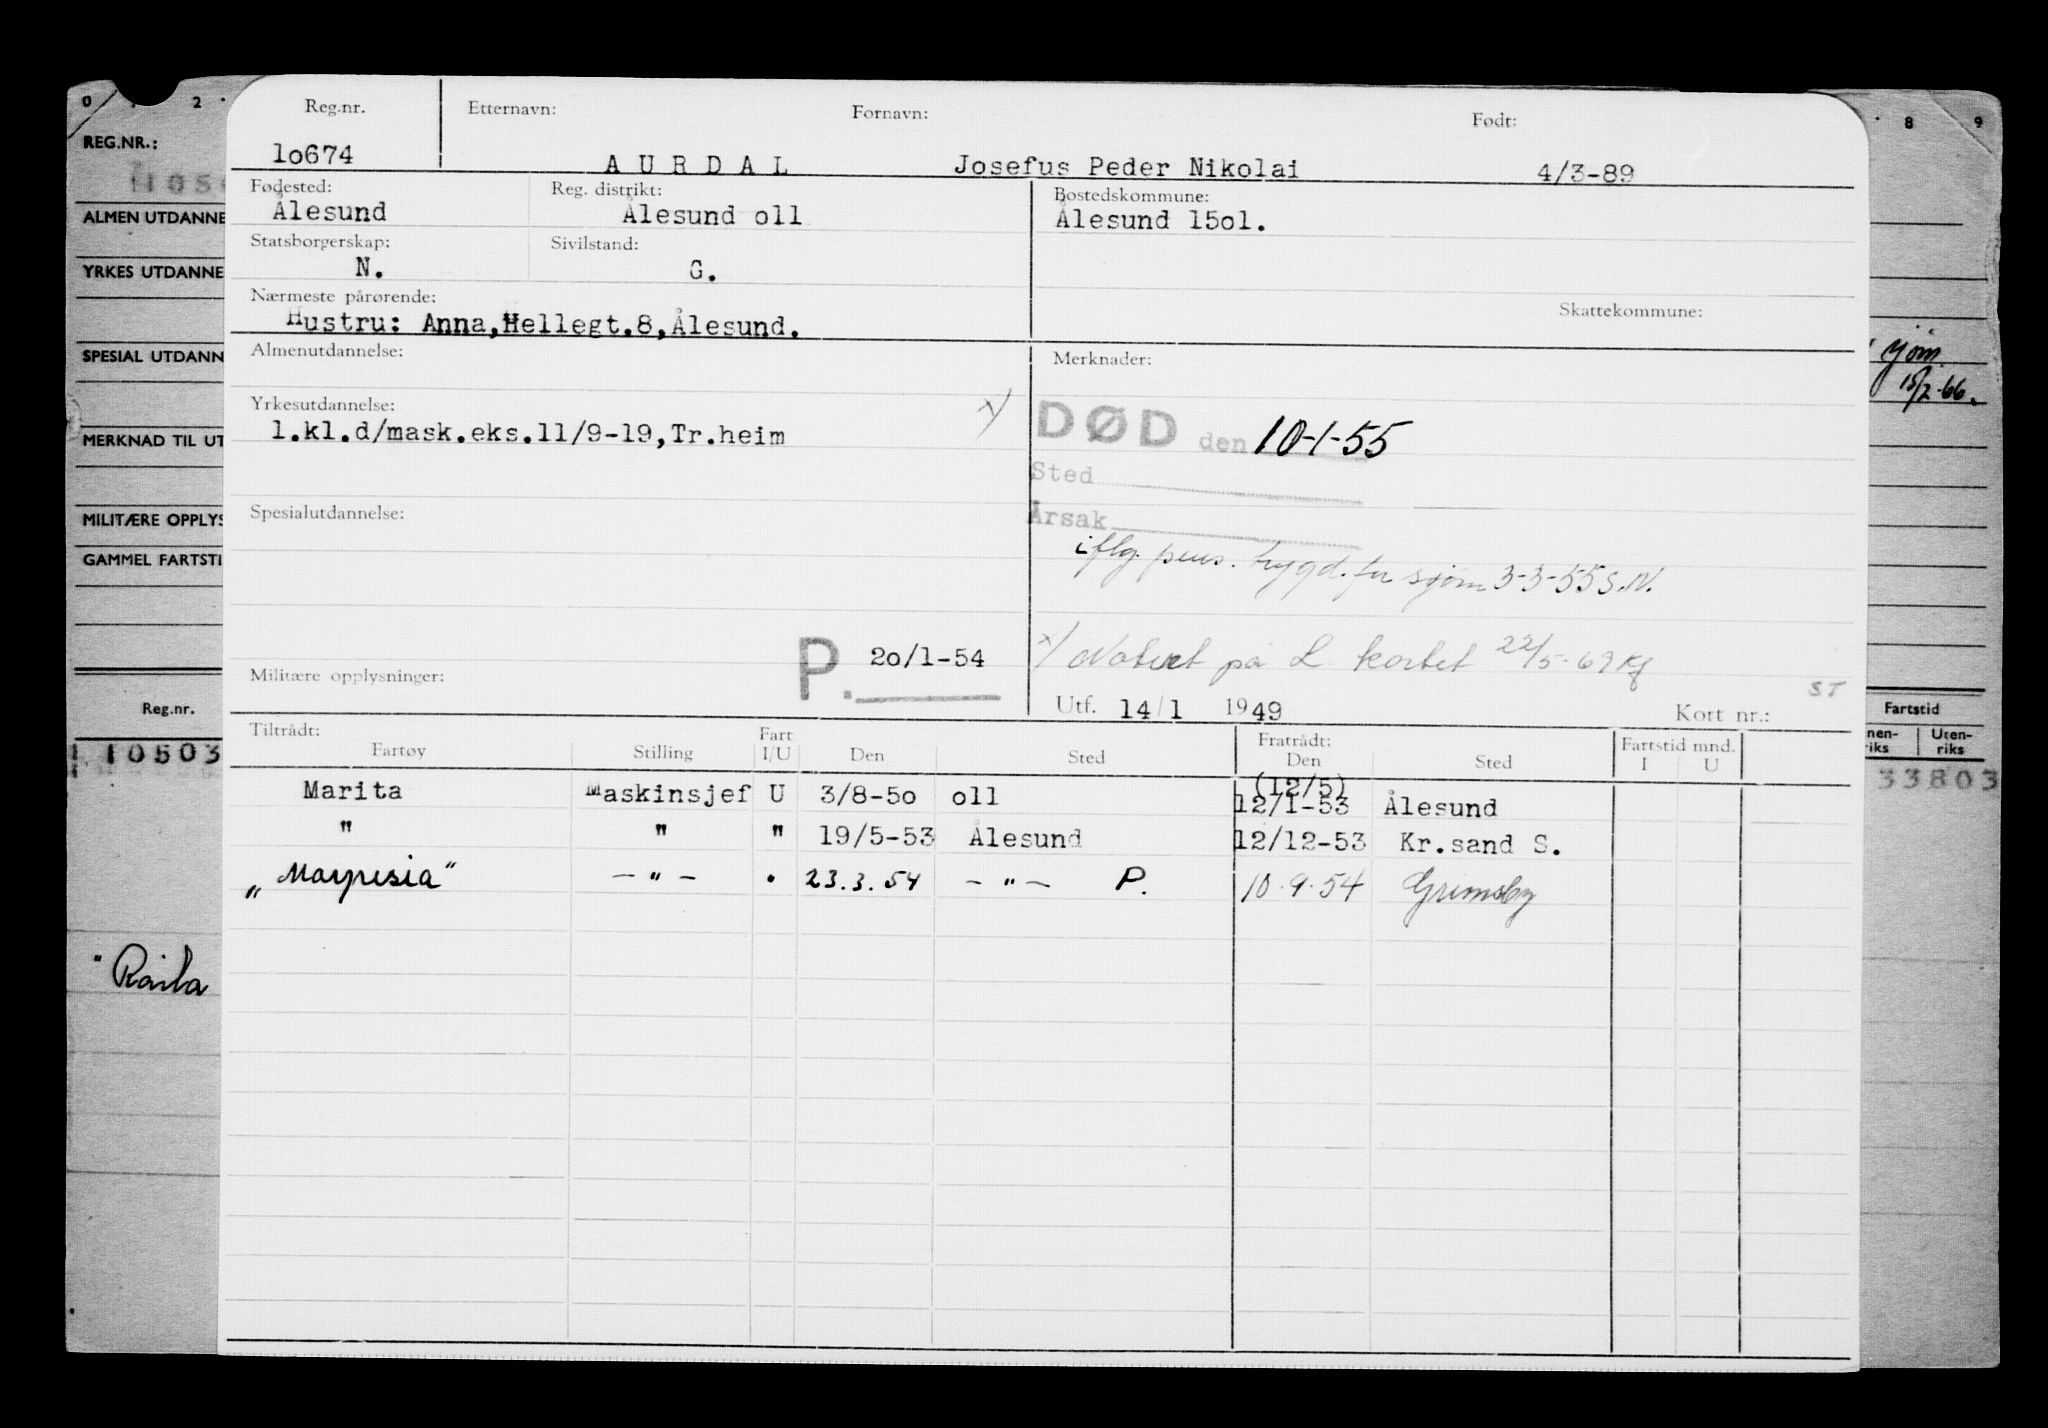 0 2 8 9
REG.NR.:
ALMEN UTDANNE
YRKES UTDANNE
SPESIAL UTDANN
MERKNAD TIL UT
MILITÆRE OPPLYS
GAMMEL FARTSTI
Reg.nr.
10503
"Raila
Reg.nr. Etternavn: Fornavn: Født:
1o674 AURDAL Josefus Peder Nikolai 4/3-89
Fødested: Reg. distrikt: Bostedskommune:
Ålesund Ålesund o11 Ålesund 15o1.
Statsborgerskap: Sivilstand:
N. G.
Nærmeste pårørende: Skattekommune:
Hustru: Anna,Hellegt.8,Ålesund.
Almenutdannelse: Merknader:
Yrkesutdannelse: x/
1.kl.d/mask.eks.11/9-19,Tr.heim
DØD den 10-1-55
Sted
Årsak
Spesialutdannelse:
iflg. pens. trygd. for sjøm 3-3-55 S.N.
P. 2o/1-54
x/ Notert på L kortet 22/5-69 Kf
Militære opplysninger:
ST
Utf. 14/1 1949 Kort nr.:
Tiltrådt: Fratrådt:
Fartøy Stilling Fart I/U Den Sted Den Sted Fartstid mnd. I U
Marita Maskinsjef U 3/8-5o o11 (12/5) 12/1-53 Ålesund
" " " 19/5-53 Ålesund 12/12-53 Kr.sand S.
"Marpesia" — " — " 23.3.54 — " — P. 10.9.54 Grimsby
15/2-66.
Fartstid
nen-riks Uten-riks
33803